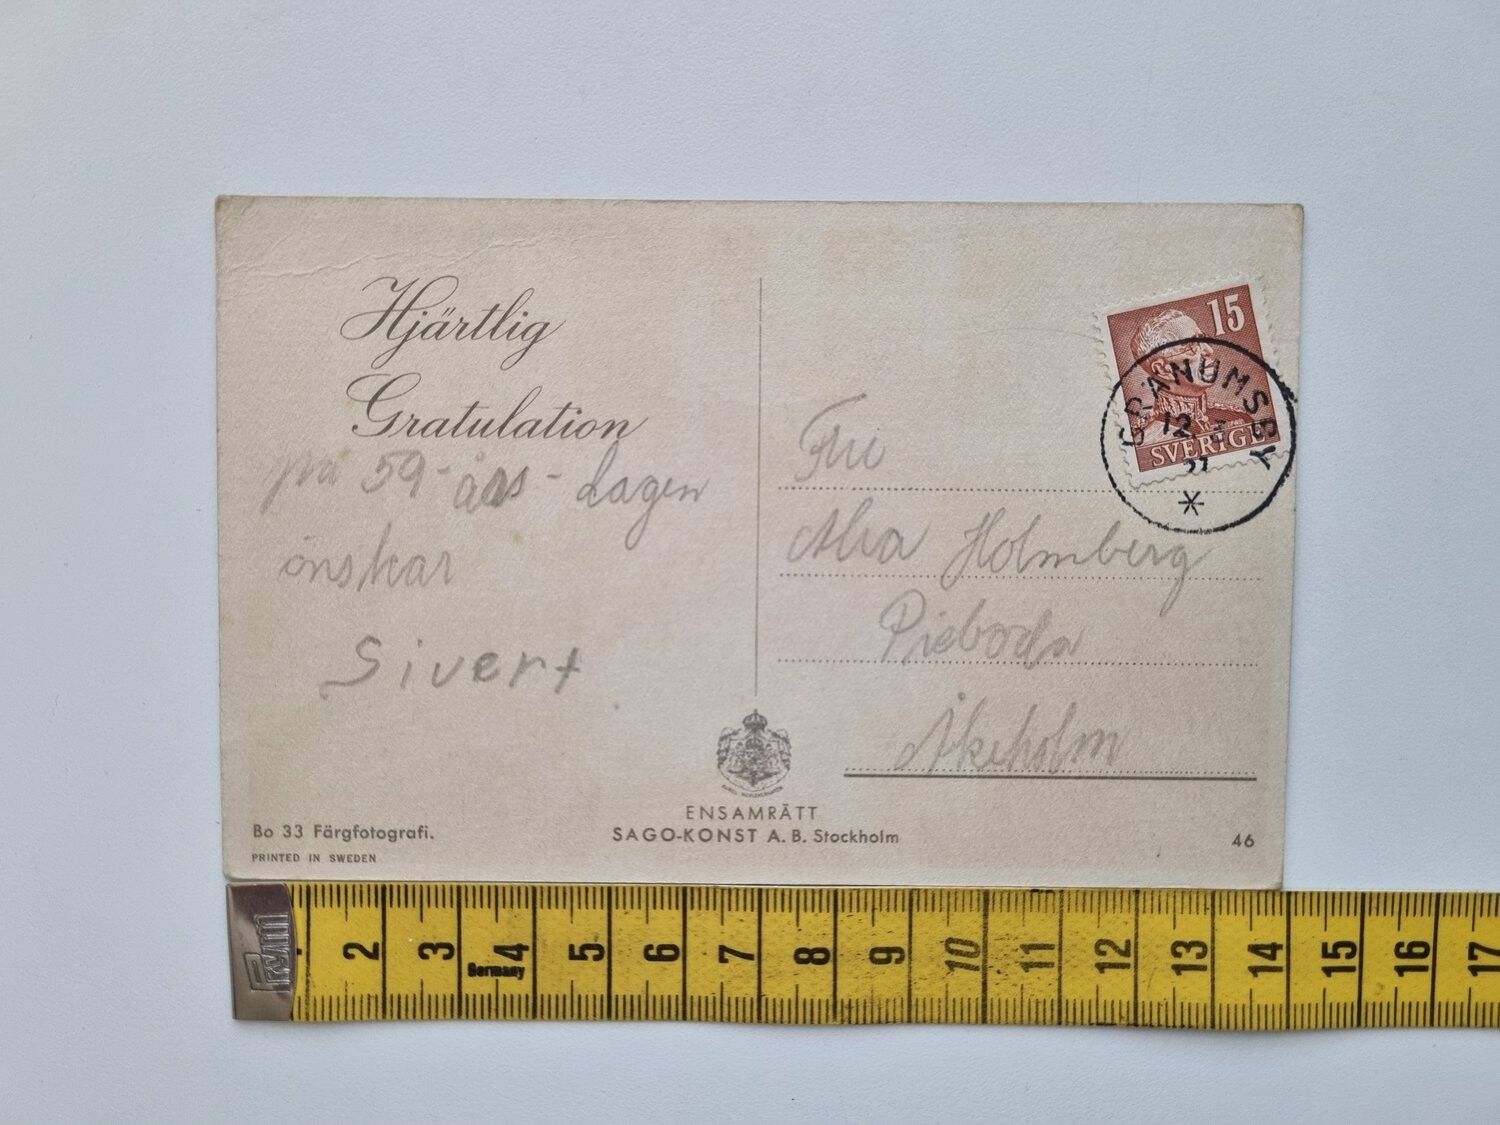 Hjärtlig
Gratulation
på 59-års-dagen
önskar
Sivert
15
SVERIGE
GRÄNUMSBY
12
Fru
Alva Holmberg
Pieboda
Åkeholm
ENSAMRÄTT
SAGO-KONST A. B. Stockholm
Bo 33 Färgfotografi.
PRINTED IN SWEDEN
46
Prym
2 3 4 5 6 7 8 9 10 11 12 13 14 15 16 17
Germany